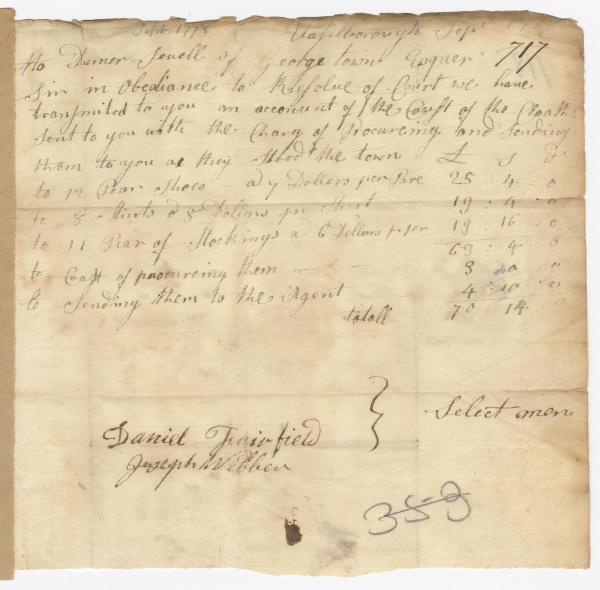 Sept 1778 Vassilborough Sepr
to Dumer Sewell of George town Esquer 717
Sir in Obediance to Resolue of Court we have
transmited to you an account of the Coust of the Cloaths
sent to you with the Charg of Procureing and Sending
them to you as they Stood the town £ s d
to 12 Pear Shoes a 7 Dollars per Pare 25 : 4 : 0
to 8 Shirts a 8 Dollars pr Shirt 19 : 4 : 0
to 11 Pear of Stockings a 6 Dollars pr per 19 : 16 : 0
63 : 4 : 0
to Coast of procureing them 3 0 0
to Sending them to the Agent 4 : 10 : 0
totall 70 14 0
Select men
Daniel Fairfield
Joseph Webber
353